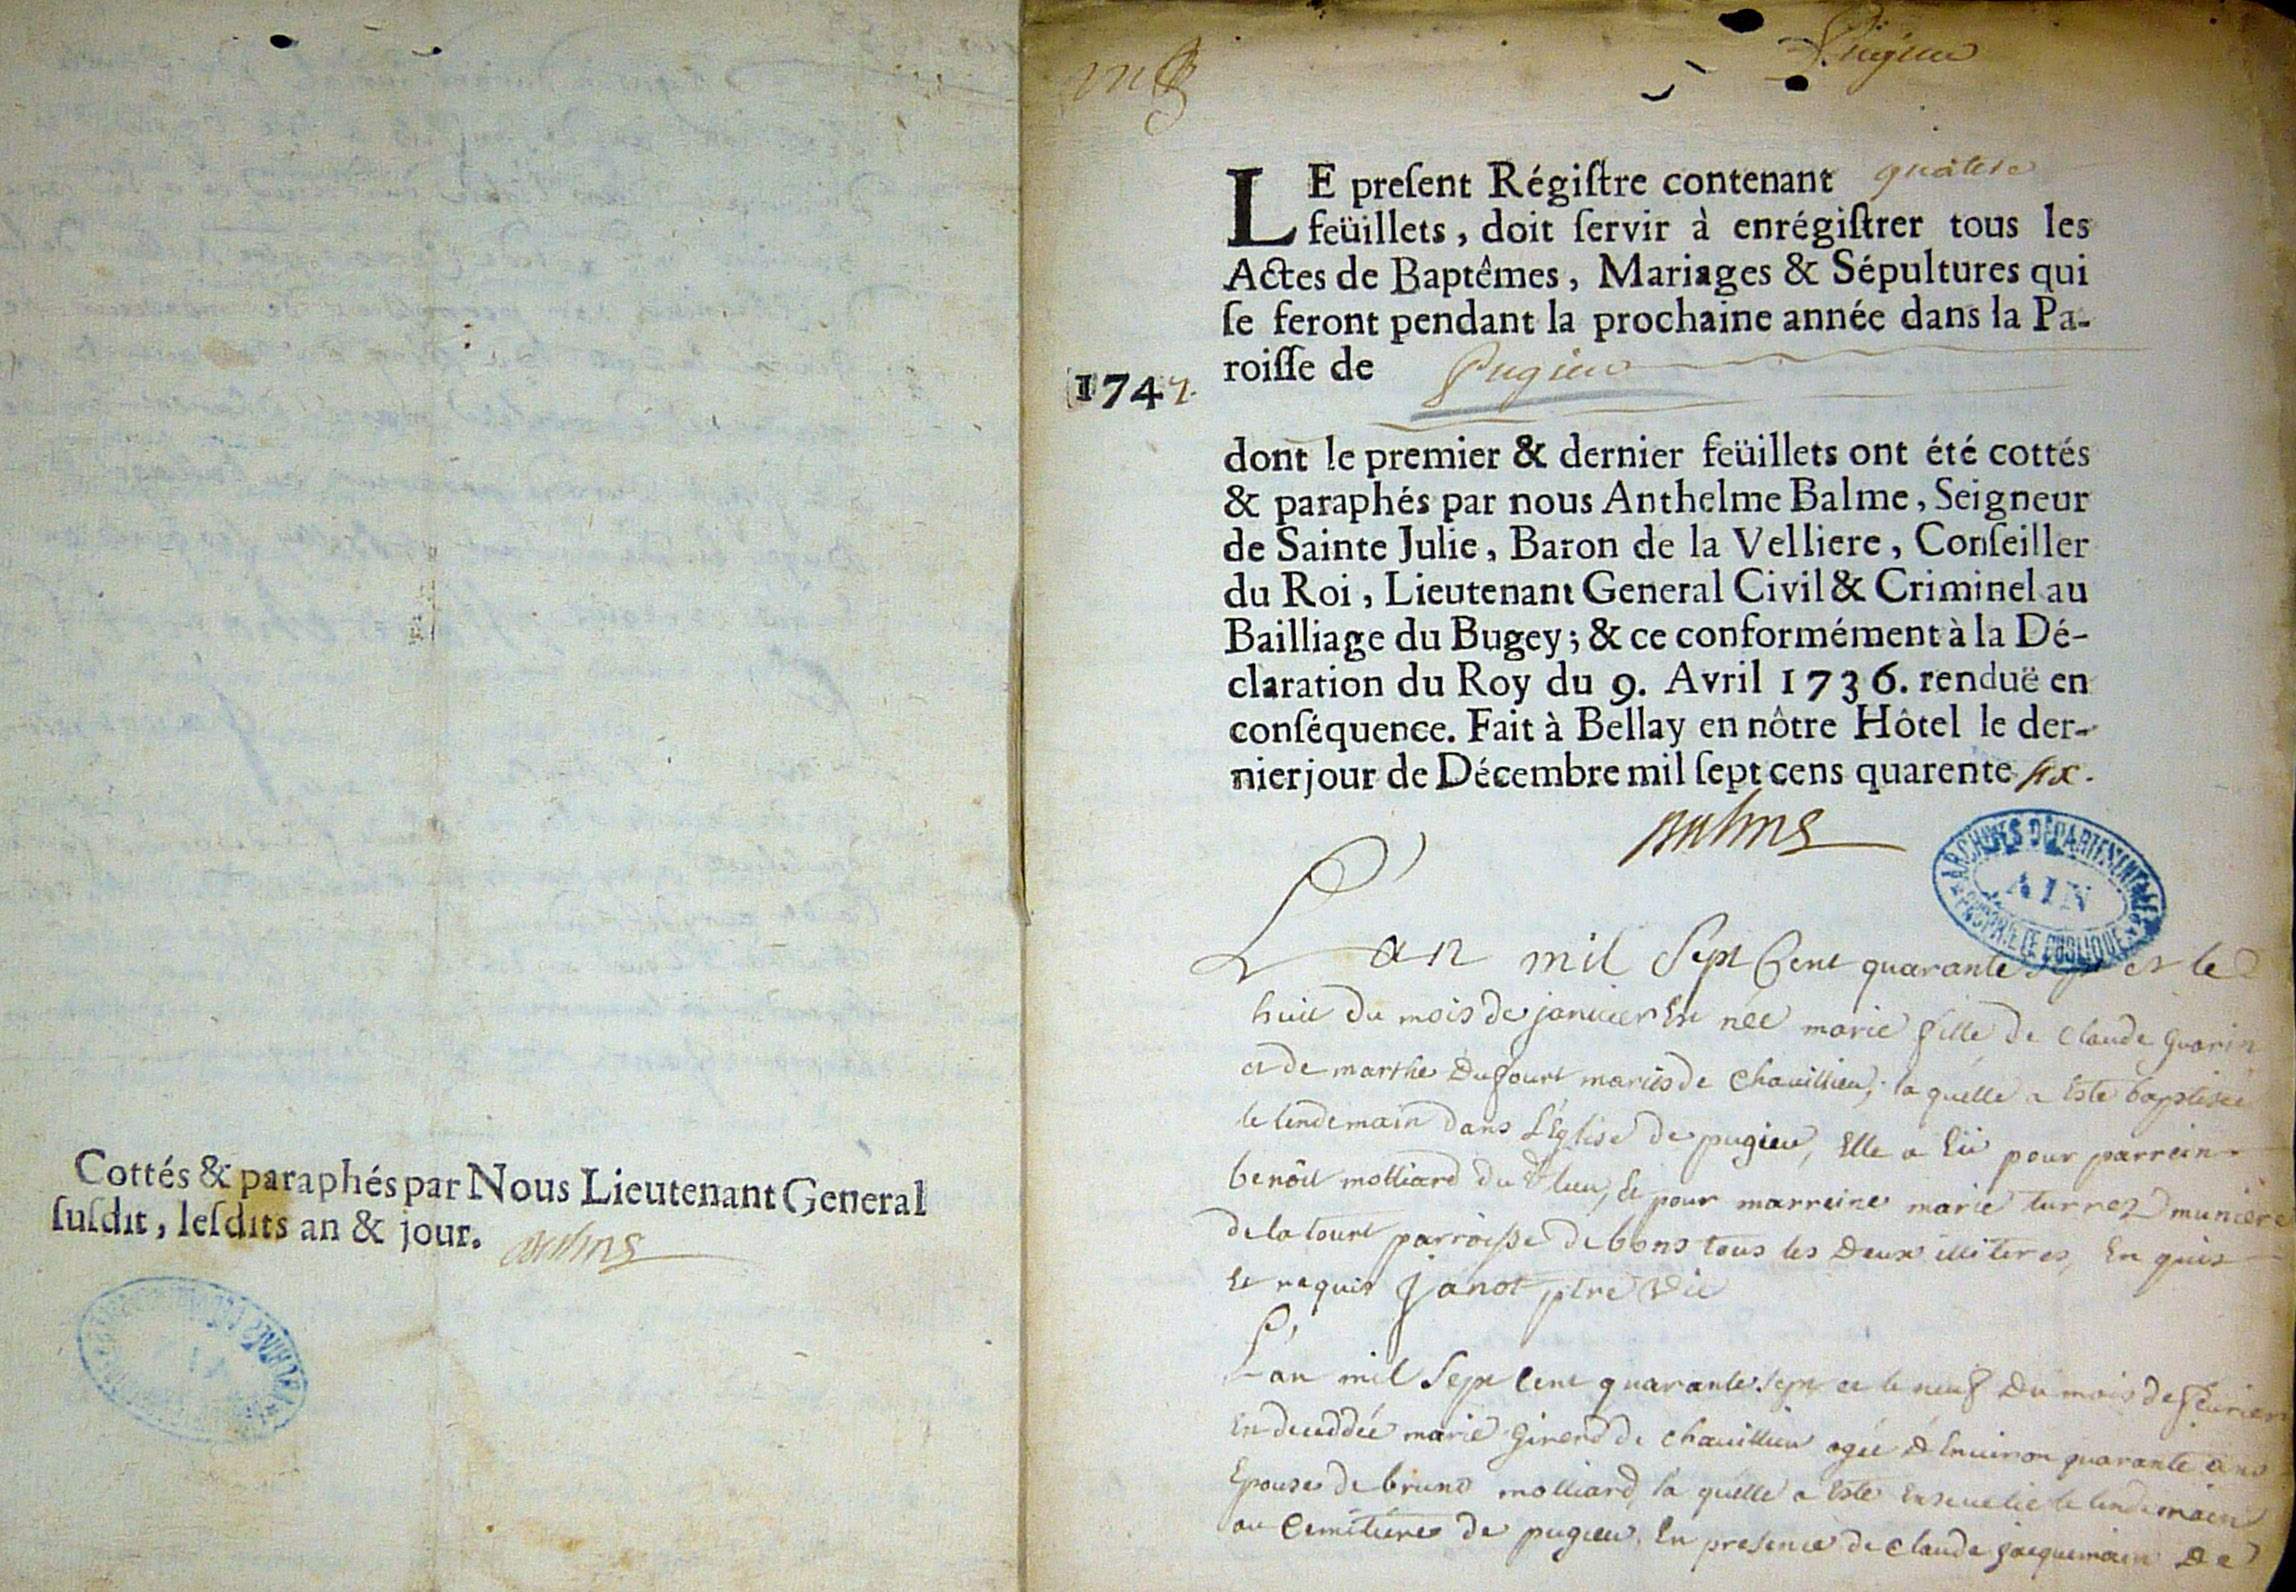 Cottés & paraphés par Nous Lieutenant General
ſuſdit, leſdits an & jour.
Pugieu
LE preſent Régiſtre contenant quatre
feüillets, doit ſervir à enrégiſtrer tous les
Actes de Baptêmes, Mariages & Sépultures qui
ſe feront pendant la prochaine année dans la Pa-
roiſſe de Pugieu
1747.
dont le premier & dernier feüillets ont été cottés
& paraphés par nous Anthelme Balme, Seigneur
de Sainte Julie, Baron de la Velliere, Conſeiller
du Roi, Lieutenant General Civil & Criminel au
Bailliage du Bugey; & ce conformément à la Dé-
claration du Roy du 9. Avril 1736. renduë en
conſéquence. Fait à Bellay en nôtre Hôtel le der-
nier jour de Décembre mil ſept cens quarente six.
ARCHIVES DÉPARTEMENTALES
AIN
PROPRIÉTÉ PUBLIQUE
L'an mil Sept Cent quarante sept et le
huit du mois de janvier Est née marie fille de Claude Guarin
et de marthe Dufourt mariés de Chavillieu, la quelle a Esté baptisée
le lendemain dans L'Église de pugieu, Elle a Eü pour parrein
benôit molliard du lieu, Et pour marreine marie
de la tourt parroisse de bons tous les Deux illiteres, Enquis
Et requis Janot ptre Vic
L'an mil Sept Cent quarante sept et le neuf Du mois de feurier
Est decedée marie Girerd de Chavillieu agée d'Enuiron quarante ans
Epouse de bruno molliard, la quelle a Esté Enseuelie le lendemain
au Cemitiere de pugieu, En presence de Claude Jacquemain De